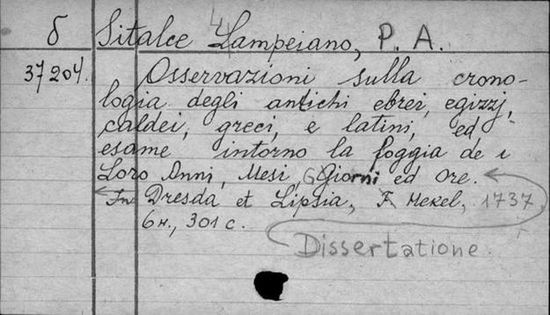 б Sitalce Lampeiano, P. A.
37204. Osservazioni sulla crono-
logia degli antichi ebrei, egizzj,
caldei, greci, e latini, ed
esame intorno la foggia de i
Loro Anni, Mesi, Giorni ed Ore.
In Dresda et Lipsia, F. Hekel, 1737.
6 н., 301 c.
Dissertatione.